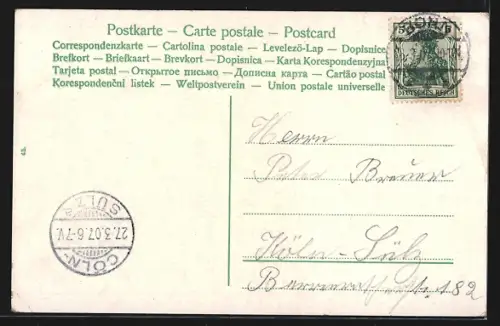 Postkarte – Carte postale – Postcard
Correspondenzkarte – Cartolina postale – Levelező-Lap – Dopisnice
Brefkort – Briefkaart – Brevkort – Dopisnica – Karta Korespondenzyjna
Tarjeta postal – Открытое письмо – Дописна карта – Cartão postal
Korespondenční listek – Weltpostverein – Union postale universelle
DEUTSCHES REICH
Herrn
Peter Breuer
Köln-Sülz
182
CÖLN-
27.3.07.6-7V.
SÜLZ